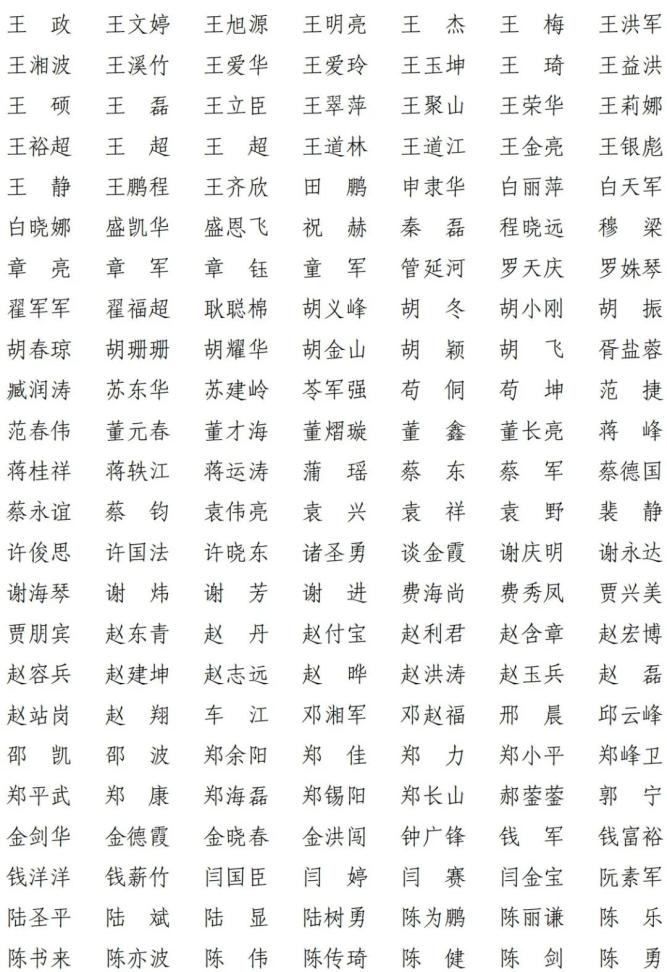 王　政　王文婷　王旭源　王明亮　王　杰　王　梅　王洪军
王湘波　王溪竹　王爱华　王爱玲　王玉坤　王　琦　王益洪
王　硕　王　磊　王立臣　王翠萍　王聚山　王荣华　王莉娜
王裕超　王　超　王　超　王道林　王道江　王金亮　王银彪
王　静　王鹏程　王齐欣　田　鹏　申隶华　白丽萍　白天军
白晓娜　盛凯华　盛恩飞　祝　赫　秦　磊　程晓远　穆　梁
章　亮　章　军　章　钰　童　军　管延河　罗天庆　罗姝琴
翟军军　翟福超　耿聪棉　胡义峰　胡　冬　胡小刚　胡　振
胡春琼　胡珊珊　胡耀华　胡金山　胡　颖　胡　飞　胥盐蓉
臧润涛　苏东华　苏建岭　苓军强　苟　侗　苟　坤　范　捷
范春伟　董元春　董才海　董熠璇　董　鑫　董长亮　蒋　峰
蒋桂祥　蒋轶江　蒋运涛　蒲　瑶　蔡　东　蔡　军　蔡德国
蔡永谊　蔡　钧　袁伟亮　袁　兴　袁　祥　袁　野　裴　静
许俊思　许国法　许晓东　诸圣勇　谈金霞　谢庆明　谢永达
谢海琴　谢　炜　谢　芳　谢　进　费海尚　费秀凤　贾兴美
贾朋宾　赵东青　赵　丹　赵付宝　赵利君　赵含章　赵宏博
赵容兵　赵建坤　赵志远　赵　晔　赵洪涛　赵玉兵　赵　磊
赵站岗　赵　翔　车　江　邓湘军　邓赵福　邢　晨　邱云峰
邵　凯　邵　波　郑余阳　郑　佳　郑　力　郑小平　郑峰卫
郑平武　郑　康　郑海磊　郑锡阳　郑长山　郝蓥蓥　郭　宁
金剑华　金德霞　金晓春　金洪闯　钟广锋　钱　军　钱富裕
钱洋洋　钱薪竹　闫国臣　闫　婷　闫　赛　闫金宝　阮素军
陆圣平　陆　斌　陆　显　陆树勇　陈为鹏　陈丽谦　陈　乐
陈书来　陈亦波　陈　伟　陈传琦　陈　健　陈　剑　陈　勇